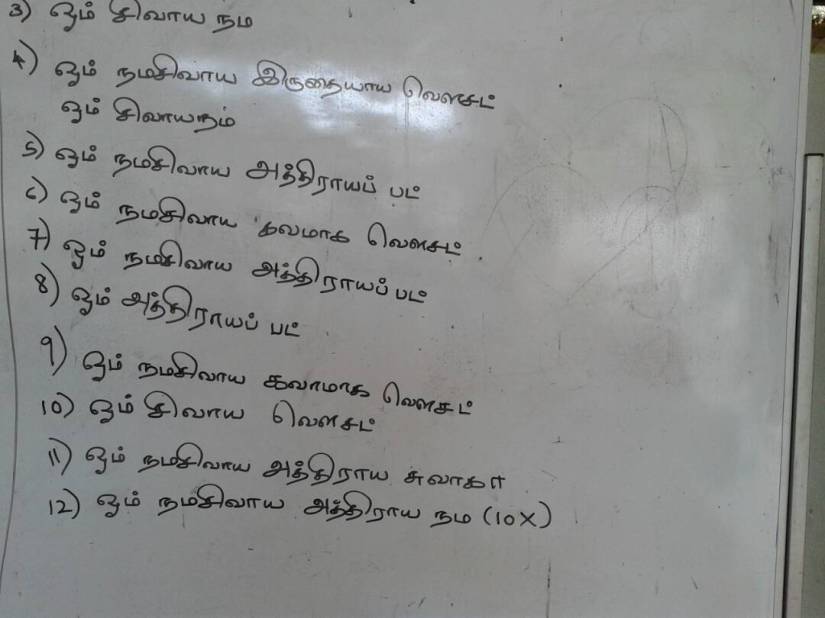 3) ஓம் சிவாய நம
4) ஓம் நமசிவாய இருதையாய வௌசட்
ஓம் சிவாயநம்
5) ஓம் நமசிவாய அத்திராயப் பட்
6) ஓம் நமசிவாய கவமாக வௌசட்
7) ஓம் நமசிவாய அத்திராயப்பட்
8) ஓம் அத்திராயப் பட்
9) ஓம் நமசிவாய கவாமாக வௌசட்
10) ஓம் சிவாய வௌசட்
11) ஓம் நமசிவாய அத்திராய சுவாகா
12) ஓம் நமசிவாய அத்திராய நம (10X)